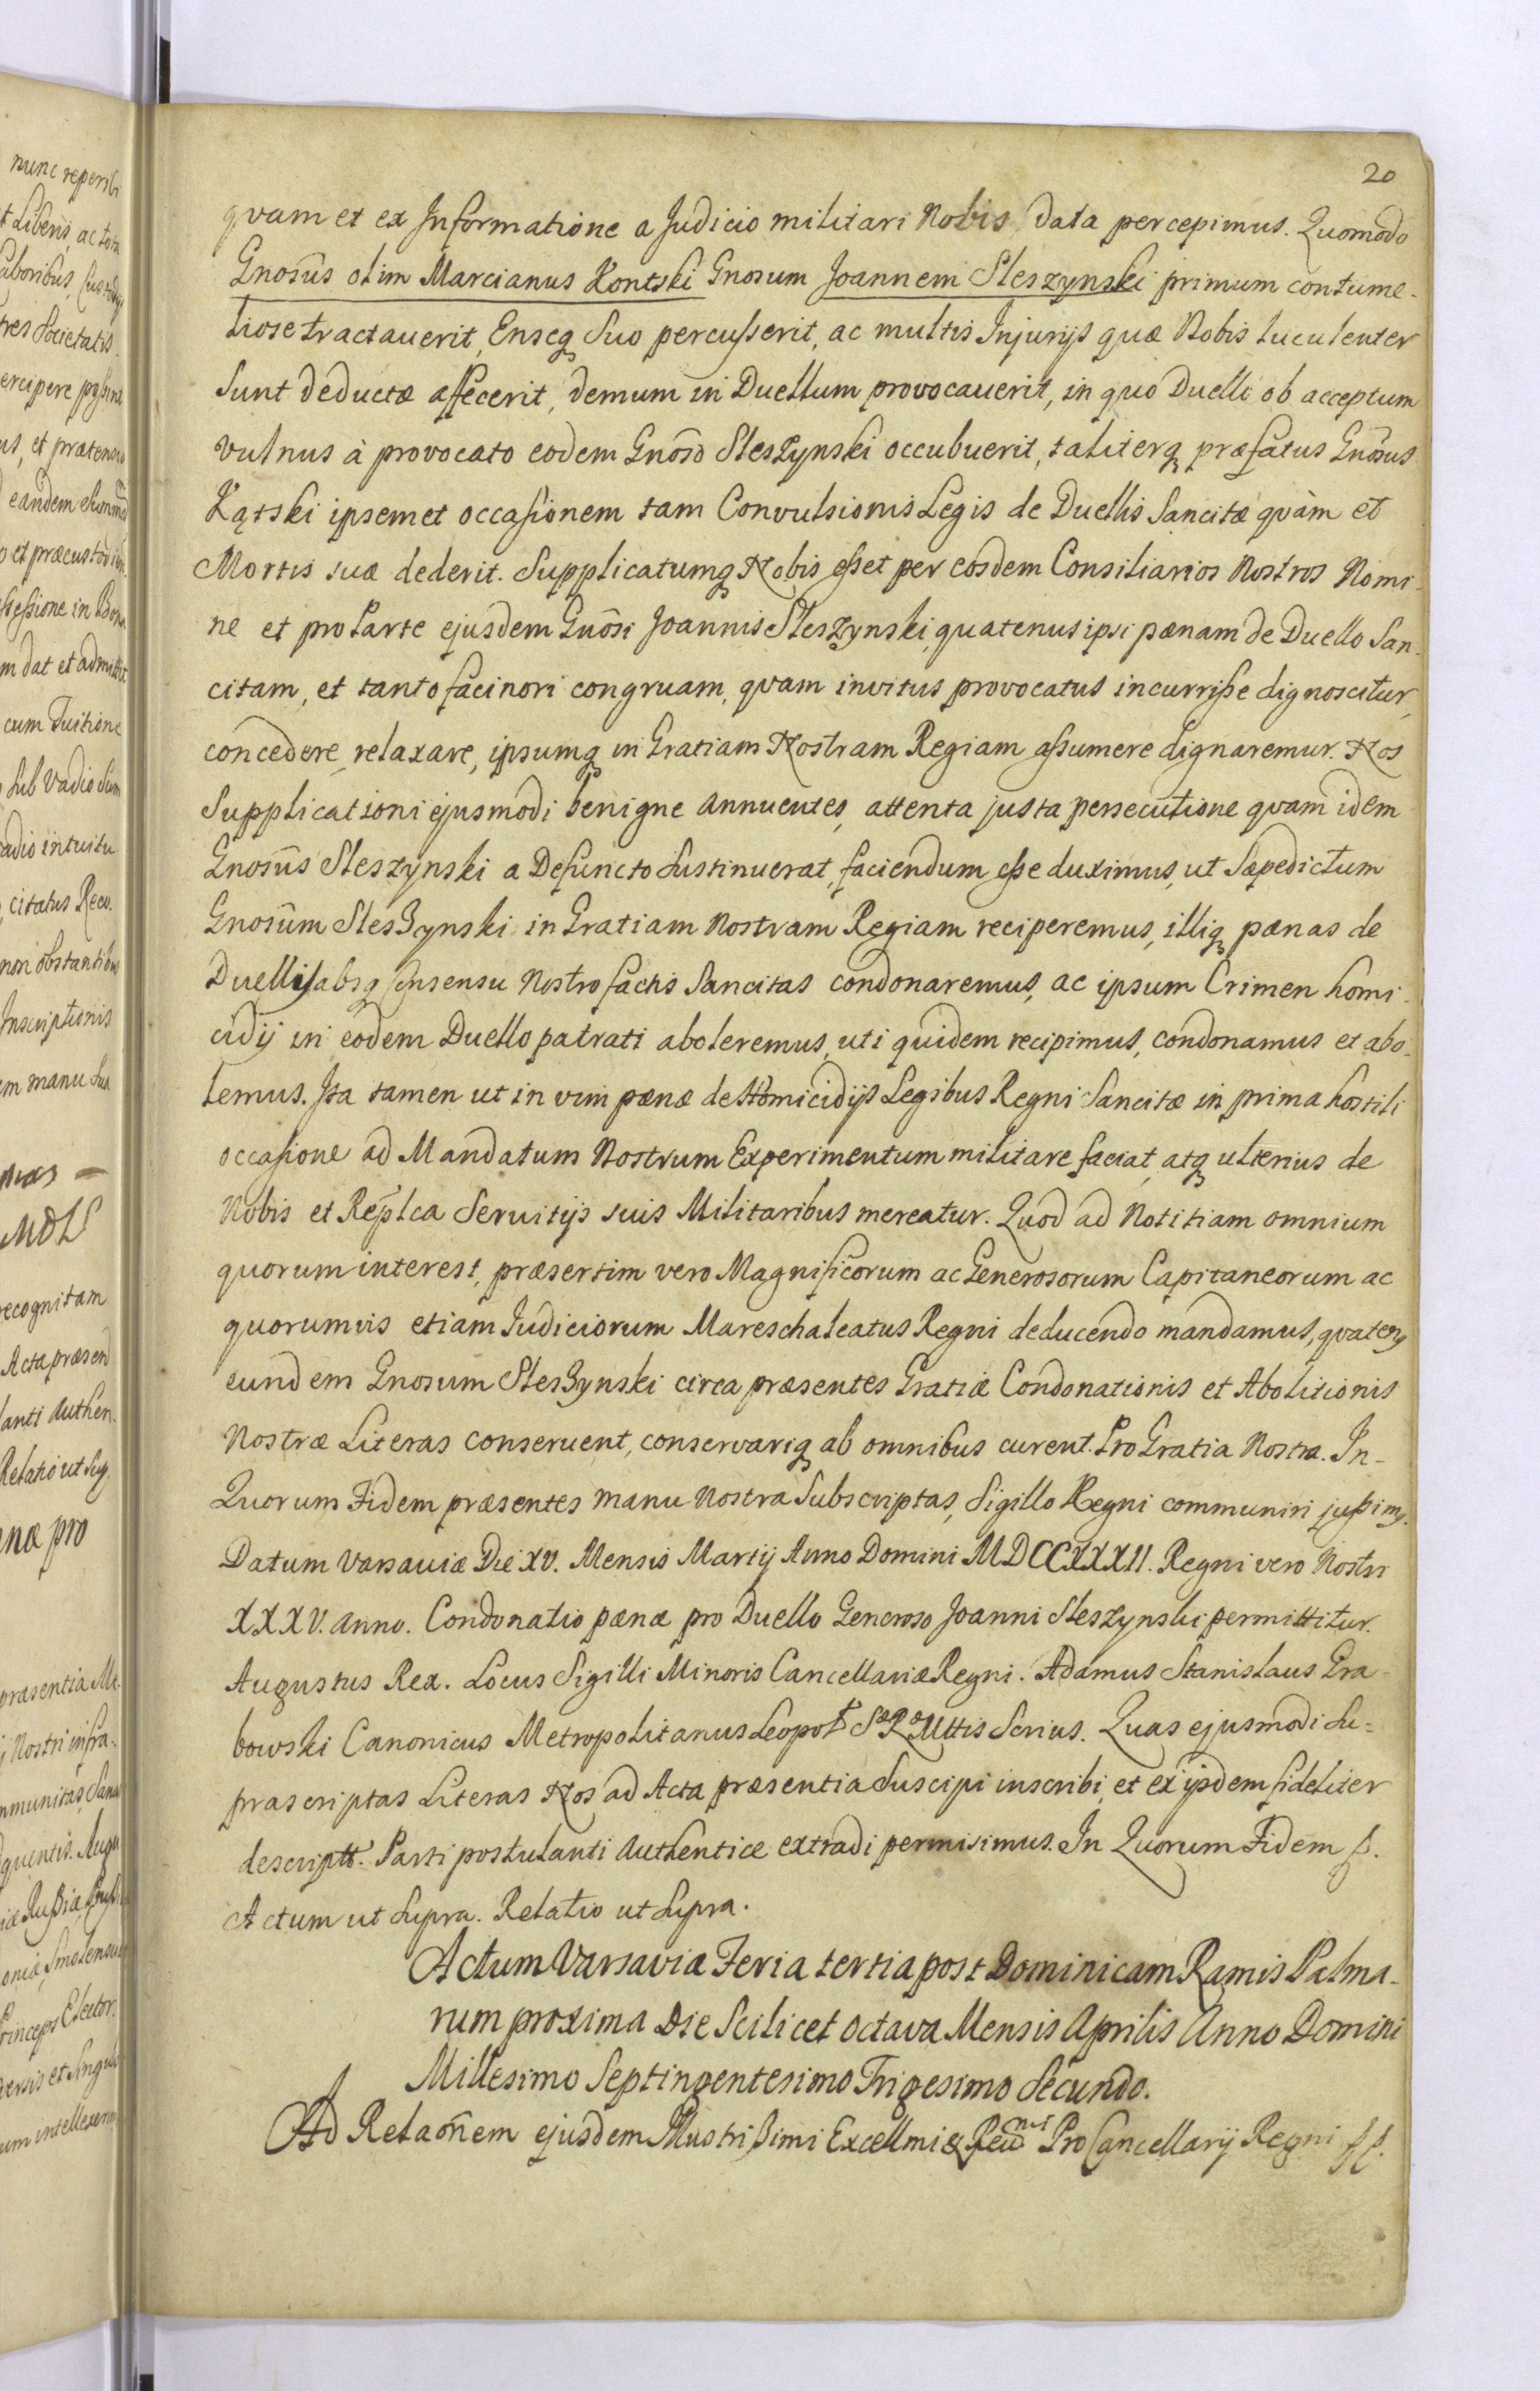 20
qvam et ex Informatione a Judicio militari Nobis data percepimus. Quomodo
Gnosus olim Marcianus Kontski Gnosum Joannem Sleszynski primum contume-
liose tractauerit, Enseq Suo percusserit, ac multis Injurijs quæ Nobis luculenter
Sunt deductæ affecerit, demum in Duellum provocauerit, in quo Duello ob acceptum
vulnus à provocato eodem Gnoso Sleszynski occubuerit, taliterq præfatus Gnosus
Kątski ipsemet occasionem tam Convulsionis Legis de Duellis Sancitæ quàm et
Mortis suæ dederit. Supplicatumq Nobis esset per eosdem Consiliarios Nostros Nomi-
ne et pro Parte ejusdem Gnosi Joannis Sleszynski, quatenus ipsi pænam de Duello San-
citam, et tanto facinori congruam, qvam invitus provocatus incurrisse dignoscitur,
concedere, relaxare, ipsumq in Gratiam Nostram Regiam assumere dignaremur. Nos
Supplicationi ejusmodi benigne annuentes, attenta justa persecutione qvam idem
Gnosus Sleszynski a Defuncto Sustinuerat, faciendum esse duximus, ut Sæpedictum
Gnosum Sleszynski in Gratiam Nostram Regiam reciperemus, illiq pænas de
Duellis absq Consensu Nostro factis Sancitas condonaremus, ac ipsum Crimen homi-
cidij in eodem Duello patrati aboleremus, uti quidem recipimus, condonamus et abo-
lemus. Ita tamen ut in vim pænæ de Homicidijs Legibus Regni Sancitæ in prima hostili
occasione ad Mandatum Nostrum Experimentum militare faciat, atq ulterius de
Nobis et Replca Seruitijs suis Militaribus mereatur. Quod ad Notitiam omnium
quorum interest, præsertim vero Magnificorum ac Generosorum Capitaneorum ac
quorumvis etiam Judiciorum Mareschaleatus Regni deducendo mandamus, qvateng
eundem Gnosum Sleszynski circa præsentes Gratiæ Condonationis et Abolitionis
Nostræ Literas conseruent, conservariq ab omnibus curent. Pro Gratia Nostra. In-
Quorum Fidem præsentes manu Nostra Subscriptas, Sigillo Regni communiri jussimg.
Datum Varsauiæ Die XV. Mensis Martij Anno Domini MDCCXXXII. Regni vero Nostri
XXXV. anno. Condonatio pænæ pro Duello Generoso Joanni Sleszynski permittitur.
Augustus Rex. Locus Sigilli Minoris Cancellariæ Regni. Adamus Stanislaus Gra-
bowski Canonicus Metropolitanus Leopol. Sæ Ræ Mttis Scrius. Quas ejusmodi Su-
prascriptas Literas Nos ad Acta præsentia Suscipi inscribi, et ex ijsdem fideliter
descriptt. Parti postulanti Authentice extradi permisimus. In Quorum Fidem p.
Actum ut Supra. Relatio ut Supra.
Actum Varsaviæ Feria tertia post Dominicam Ramis Palma-
rum proxima Die Scilicet octava Mensis Aprilis Anno Domini
Millesimo Septingentesimo Trigesimo Secundo.
Ad Relaonem ejusdem Illustrissimi Excellmi & Reu Pro Cancellarij Regni